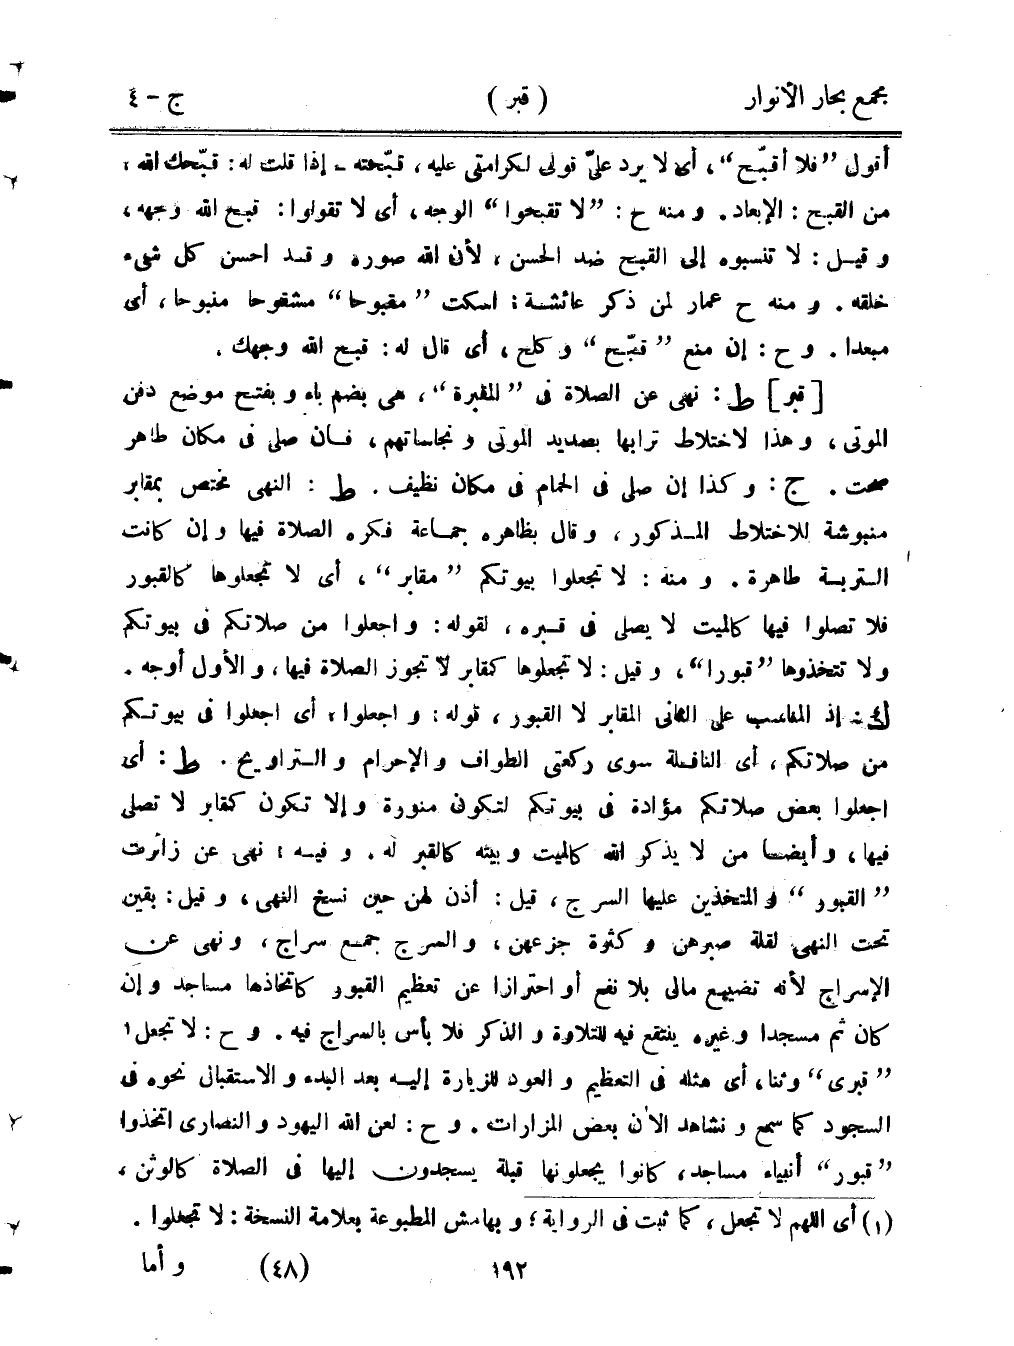 مجمع بحار الأنوار ( قبر ) ج - ٤
أقول ”فلا أقبّح“، أى لا يرد علىّ قولى لكرامتى عليه، قبّحته ـ إذا قلت له: قبّحك الله،
من القبح: الإبعاد. و منه ح: ”لا تقبحوا“ الوجه، أى لا تقولوا: قبح الله وجهه،
و قيل: لا تنسبوه إلى القبح ضد الحسن، لأن الله صوره و قد احسن كل شىء
خلقه. و منه ح عمار لمن ذكر عائشة: اسكت ”مقبوحا“ مشقوحا منبوحا، أى
مبعدا. و ح: إن منع ”قبّح“ و كلح، أى قال له: قبح الله وجهك.
[قبر] ط: نهى عن الصلاة فى ”المقبرة“، هى بضم باء و بفتح موضع دفن
الموتى، و هذا لاختلاط ترابها بصديد الموتى و نجاساتهم، فان صلى فى مكان طاهر
صحت. ج: و كذا إن صلى فى الحمام فى مكان نظيف. ط: النهى مختص بمقابر
منبوشة للاختلاط المذكور، و قال بظاهره جماعة فكره الصلاة فيها و إن كانت
التربة طاهرة. و منه: لا تجعلوا بيوتكم ”مقابر“، أى لا تجعلوها كالقبور
فلا تصلوا فيها كالميت لا يصلى فى قبره، لقوله: و اجعلوا من صلاتكم فى بيوتكم
و لا تتخذوها ”قبورا“، و قيل: لا تجعلوها كمقابر لا تجوز الصلاة فيها، و الأول أوجه.
ك: إذ المناسب على الثانى المقابر لا القبور، قوله: و اجعلوا، أى اجعلوا فى بيوتكم
من صلاتكم، أى النافلة سوى ركعتى الطواف و الإحرام و التراويح. ط: أى
اجعلوا بعض صلاتكم مؤادة فى بيوتكم لتكون منورة و إلا تكون كمقابر لا تصلى
فيها، و أيضا من لا يذكر الله كالميت و بيته كالقبر له. و فيه: نهى عن زائرت
”القبور“ و المتخذين عليها السرج، قيل: أذن لهن حين نسخ النهى، و قيل: بقين
تحت النهى لقلة صبرهن و كثرة جزعهن، و السرج جمع سراج، و نهى عن
الإسراج لأنه تضييع مالى بلا نفع أو احترازا عن تعظيم القبور كاتخاذها مساجد و إن
كان ثم مسجدا و غيره ينتفع فيه للتلاوة و الذكر فلا بأس بالسراج فيه. و ح: لا تجعل١
”قبرى“ وثنا، أى مثله فى التعظيم و العود للزيارة إليه بعد البدء و الاستقبال نحوه فى
السجود كما سمع و نشاهد الآن بعض المزارات. و ح: لعن الله اليهود و النصارى اتخذوا
”قبور“ أنبياء مساجد، كانوا يجعلونها قبلة يسجدون إليها فى الصلاة كالوثن،
(١) أى اللهم لا تجعل، كما ثبت فى الرواية؛ و بهامش المطبوعة بعلامة النسخة: لا تجعلوا.
١٩٢ (٤٨) و أما